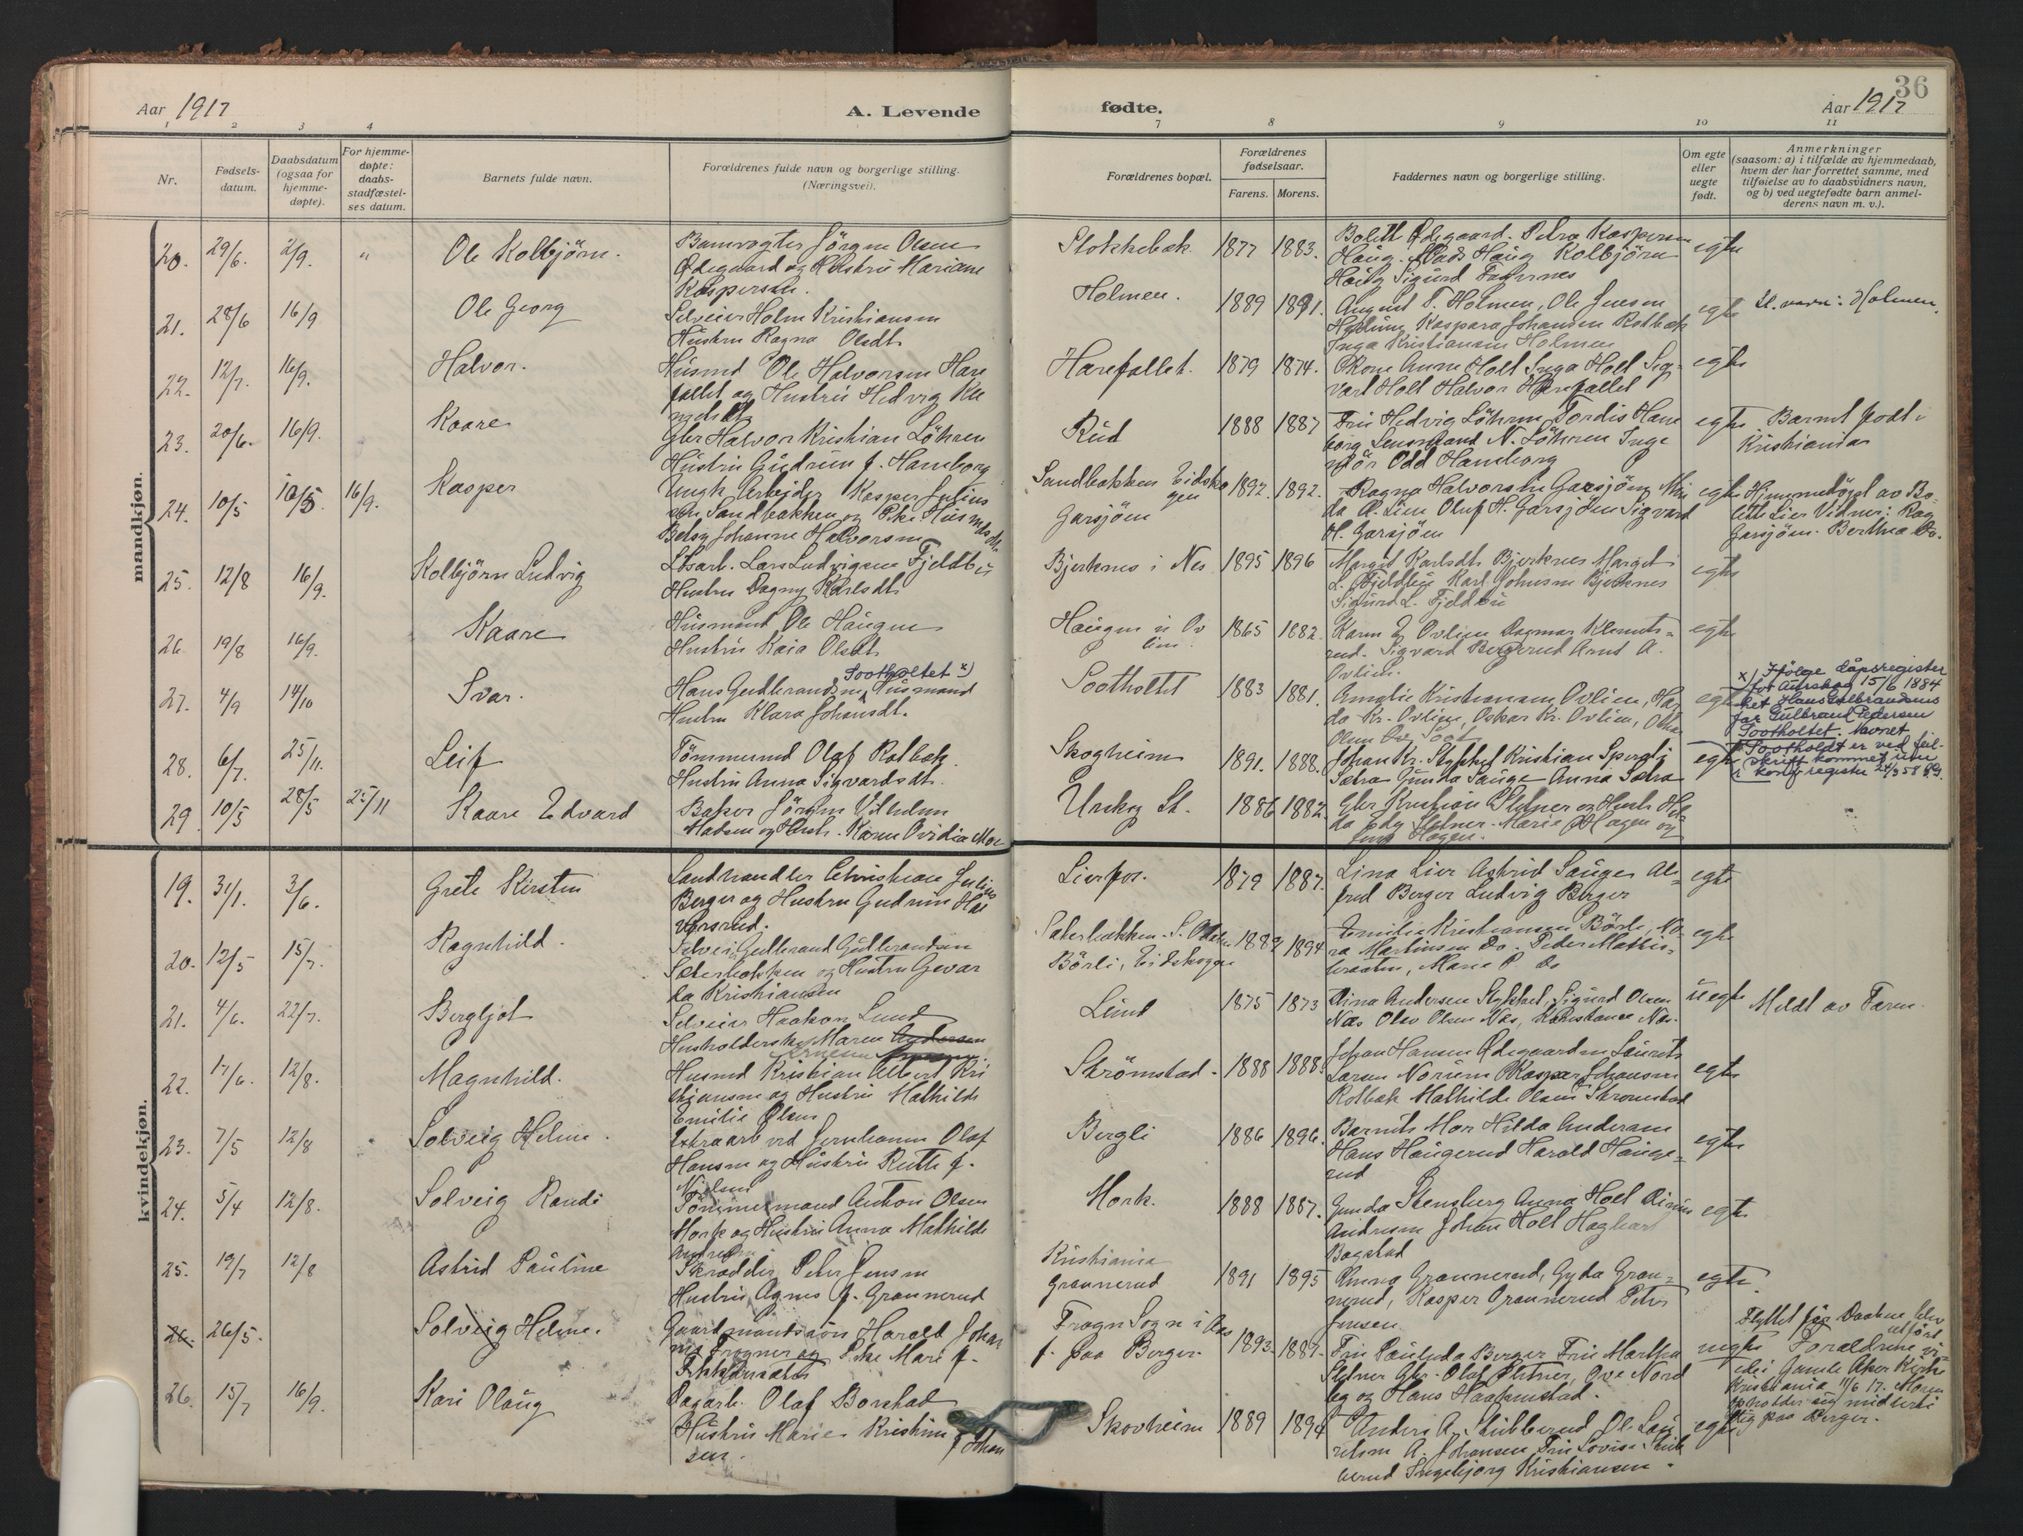 Aar 1917
A. Levende
fødte.
36
Aar 1917
1 2 3 4 7 8 9 10 11
Nr.
Fødsels-
datum.
Daabsdatum
(ogsaa for
hjemme-
døpte).
For hjemme-
døpte:
daabs-
stadfæstel-
ses datum.
Barnets fulde navn.
Forældrenes fulde navn og borgerlige stilling.
(Næringsvei).
Forældrenes bopæl.
Forældrenes
fødselsaar.
Farens. Morens.
Faddernes navn og borgerlige stilling.
Om egte
eller
uegte
født.
Anmerkninger
(saasom: a) i tilfælde av hjemmedaab,
hvem der har forrettet samme, med
tilføielse av to daabsvidners navn,
og b) ved uegtefødte barn anmel-
derens navn m. v.).
mandkjøn.
20. 29/6. 2/9. " Ole Kolbjörn.
Banevogter Jörgen Olsen
Ødegaard og Hustru Mariane
Kaspersen.
Stokkebæk 1877 1883.
Bolette Ødegaard. Petra Kaspersen
Haug. Mads Haug Kolbjörn
Haug Sigurd Fagernes
egte
21. 28/6 16/9 Ole Georg
Selveier Holm Kristiansen
Hustru Ragna Olsdt.
Holmen. 1889 1891.
August T. Holmen, Ole Jensen
Kaspara Johansen Rotbæk
Inga Kristiansen Holmen
egte
Sl. navn: Holmen.
22. 12/7. 16/9. Halvor.
Husmd Ole Halvorsen Hare
fallet og Hustru Hedvig
Harefallet. 1879 1874.
Anne Holt Inga Holt Sig-
vart Holt Halvor Harefallet
egte
23. 20/6. 16/9. Kaare
Gbr Halvor Kristian Löhren
Hustru Gudrun f. Hamborg
Rud 1888 1887
Fru Hedvig Löhren Tordis Ham
borg Lensmand N. Löhren Inge
niör Odd Hamborg
egte
Barnet født i
Kristiania
24. 10/5 10/5 16/9. Kasper
Ungk Arbeider Kasper Julius
sen Sandbakken og Pike
Betsy Johanne Halvorsen
Sandbakken Eidsko
gen
Garsjöen
1892. 1892.
Ragna Halvorsen Garsjöen
da A. Lien Oluf H. Garsjöen Sigvard
H. Garsjöen
egte
Hjemmedöpt av Bo-
lette Lier Vidner: Rag
Garsjöen. Berthea Do.
25. 12/8 16/9. Kolbjörn Ludvig
Lars Ludvigsen Fjeldbu
Hustru Dagny Karlsdt.
Bjerknes i Nes 1895 1896
Margit Karlsdt Bjerknes Margit
L. Fjeldbu Karl Johansen Bjerknes
Sigurd L. Fjeldbu
egte
26. 19/8 16/9. Kaare
Husmand Ole Haugen
Hustru Kaia Olsdt
Haugen u Ov
lien.
1865 1882.
Karen E Ovlien Dagmar Klemets-
rud. Sigvard Bergerud Arnt A.
Ovlien.
egte
27. 4/9 14/10 Ivar.
Tootholtet x)
Hans Gudbrandsen Husmand
Hustru Klara Johansdt.
Tootholtet 1883 1881.
Amalie Kristiansen Ovlien,
da Kr. Ovlien, Oskar Kr. Ovlien,
Olsen
egte
x) Ifølge dåpsregister
for Aurskog 15/6 1884
het Hans Gulbrandsens
far Gulbrand Pedersen
Tootholtet. Navnet
Tootholdt er ved feil-
skrift kommet inn
i konf. register 24/3 58
28. 6/7. 25/11. Leif
Tömmermd Olaf Rotbæk
Hustru Anna Sigvardsdt.
Skogheim 1891. 1888.
Johan Kr. Stykket Kristian
Sætra Gunda Sauge Anna Sætra
egte
29. 10/5 28/5 25/11 Kaare Edvard
Baker Jörgen Vilhelm
Madsen og Hust. Karen Ovidia Moe
Urskog St. 1886 1882.
Gbr Kristian Sletner og Hustr
da Edg Sletner. Marie Hagen og
Hagen.
kvindekjøn.
19. 31/1. 3/6. Grete Kirsten
Landhandler Christian Julius
Berger og Hustru Gudrun Hal
vorsrud.
Lierfos. 1879 1887.
Lina Lier Astrid Sauge Al-
fred Berger Ludvig Berger
egte
20. 12/5 15/7. Ragnhild.
Selvei. Gulbrand Gulbrandsen
Sæterbakken og Hustru Gevar
da Kristiansen
Sæterbakken. S. Odalen
Börli, Eidskogen
1889 1894
Emilie Kristiansen Börli, No
ra Martinsen Do. Peder Mattis-
braaten, Marie P. Do
egte
21. 4/6. 22/7. Bergljot
Selveier Haakon Lund
Husholderske Maren
Lund 1875 1873
Dina Andersen Stykket, Sigurd Olsen
Næs Olav Olsen Næs, Konstance Næs.
uegte
Meldt av Faren
22. 17/6. 12/8. Magnhild.
Husmd Kristian Albert Kri
stiansen og Hustru Mathilde
Emilie Olsen
Skrömstad. 1888 1888
Johan Hansen Ødegaarden Laurits
Larsen Kasper Johansen
Rotbæk Mathilde Olsen Skromstad
egte
23. 7/5 12/8 Solveig Helene.
Extraarb ved Jernbanen Olaf
Hansen og Hustru Ruth f.
Nielsen
Bergli 1886 1896.
Barnets Mor Hilda Andersen
Hans Haugerud Harald Hauge-
rud
egte
24. 5/4 12/8. Solveig Randi
Tömmermand Anton Olsen
Mork og Hustru Anna Mathilde
Andresen
Mork. 1888 1887.
Gunda Stensberg Anna Holt
Andresen Johan Holt Hagbart
Bogstad
egte
25. 19/7 12/8 Astrid Pauline
Skrædder Peter Jensen
Hustru Agnes f. Grannerud
Kristiania
Grannerud
1891 1895
Anna Grannerud, Gyda Gran-
nerud, Kasper Grannerud Peter
Jensen
egte.
26. 26/5. Solveig Helene.
Gaardmandssön Harald Johan
nes Frogner og Pike Marie f.
Frogn Sogn i Aas
f. paa Berger.
1893. 1889.
Fru Paulida Berger Fru Martha
Sletner Gbr. Olaf Sletner, Ove Nord
by og Hans Haakenstad.
uegte
Flyttet før Daaben blev
utført
Foraldrene vi-
et i Gamle Aker Kirke
Kristiania 11/6 17. Moren
opholder sig midlerti
dig paa Berger.
26. 15/7 16/9. Kari Olaug
Dagarb. Olaf Borstad
Hustru Marie Kristine f Johan
sen.
Skovheim 1889 1894
Anders A. Stubberud Ole Lau
ritsen A. Johansen Fru Lovise Stub
berud Ingebjørg Kristiansen.
egte